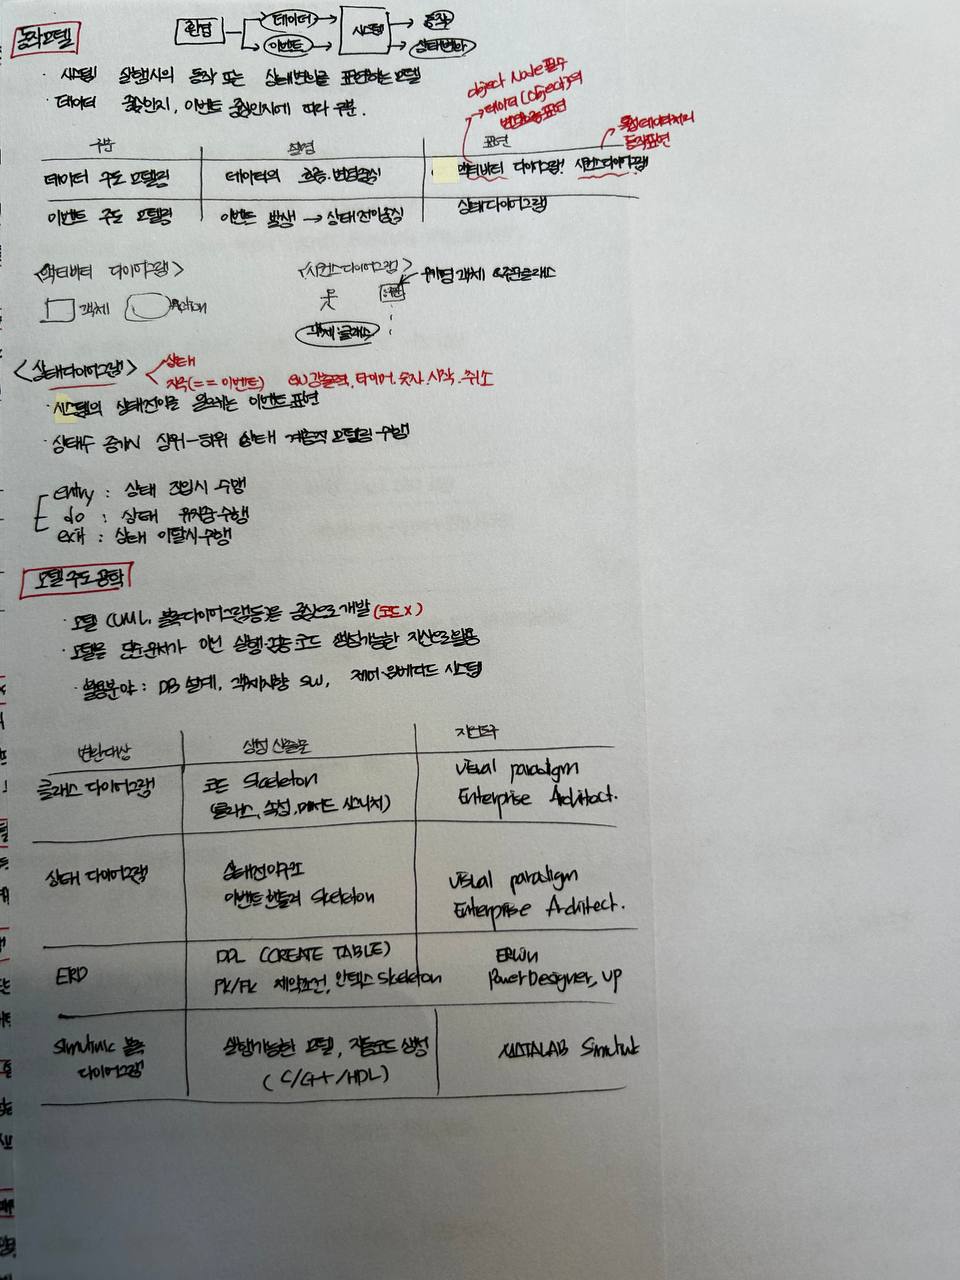 동작모델
환경
데이터
이벤트
시스템
동작
상태변화
· 시스템 실행시의 동작 또는 상태변화를 표현하는 모델
· 데이터 중심인지, 이벤트 중심인지에 따라 구분.
object Node 필수
→ 데이터(object)의
변환흐름 표현
동작표현
구분 설명 표현
데이터 주도 모델링 데이터의 흐름·변환중심 액티비티 다이어그램! 시퀀스다이어그램
이벤트 주도 모델링 이벤트 발생 → 상태전이중심 상태다이어그램
<액티비티 다이어그램>
객체 Action
<시퀀스다이어그램>
객체:클래스
<상태다이어그램>
상태
자극(== 이벤트) 타이머, 숫자, 시작, 취소
· 시스템의 상태전이를 일으키는 이벤트 표현
· 상태수 증가시 상위-하위 상태 계층적 모델링 수행
entry : 상태 진입시 수행
do : 상태 유지중 수행
exit : 상태 이탈시 수행
모델 주도 공학
· 모델 (UML, 블록다이어그램등)을 중심으로 개발 (코드 X)
· 모델을 단순 문서가 아닌 실행·검증·코드 생성가능한 자산으로 활용
· 활용분야 : DB 설계, 객체지향 SW, 제어·임베디드 시스템
변환대상 생성 산출물 지원도구
클래스 다이어그램 코드 Skeleton
(클래스, 속성, 메서드 시그니처)
Visual paradigm
Enterprise Architect.
상태 다이어그램 상태전이구조
이벤트 핸들러 Skeleton
Visual paradigm
Enterprise Architect.
ERD DDL (CREATE TABLE)
PK/FK 제약조건, 인덱스 Skeleton
ERWin
PowerDesigner, VP
Simulink 블록
다이어그램
실행가능한 모델, 자동코드 생성
( C/C++/HDL)
MATALAB Simulink